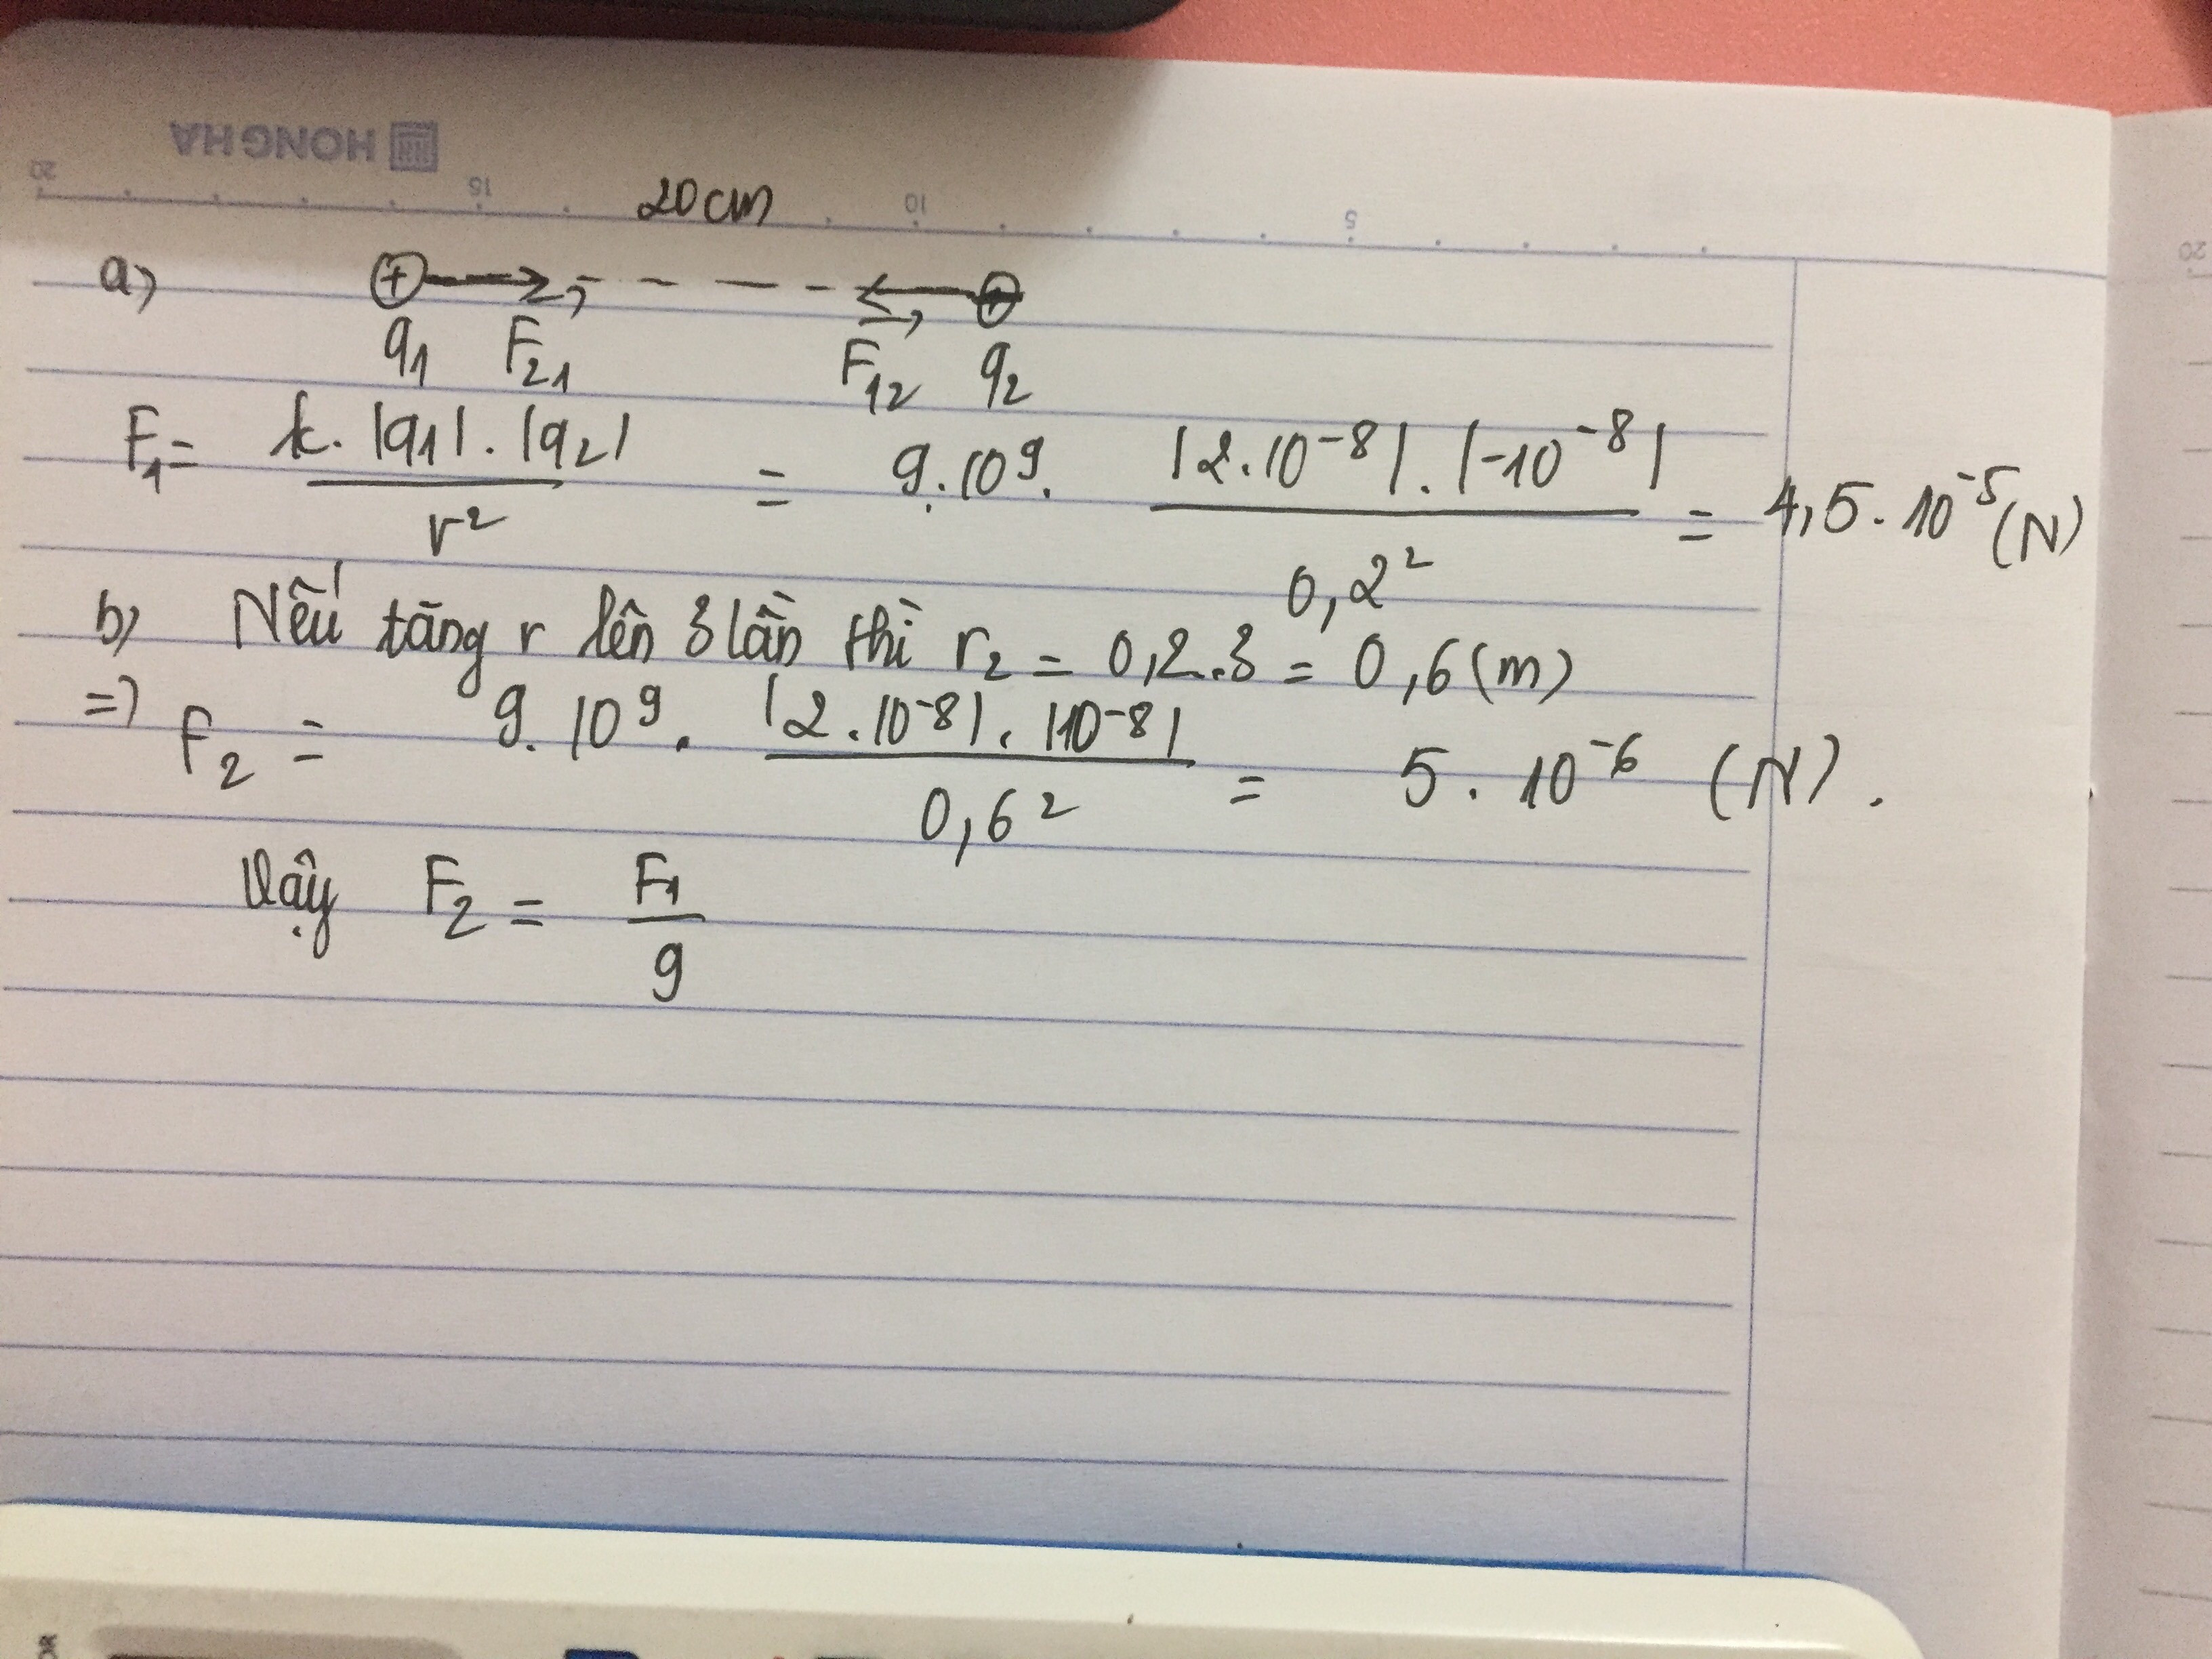 HONG HA
20 15 10 5
20
20cm
a) + -
q1 F21 F12 q2
F1 = k.|q1|.|q2| / r² = 9.10⁹. |2.10⁻⁸|.|-10⁻⁸| / 0,2² = 4,5.10⁻⁵ (N)
b) Nếu tăng r lên 3 lần thì r2 = 0,2.3 = 0,6 (m)
=> F2 = 9.10⁹. |2.10⁻⁸|.|10⁻⁸| / 0,6² = 5.10⁻⁶ (N).
Vậy F2 = F1 / 9